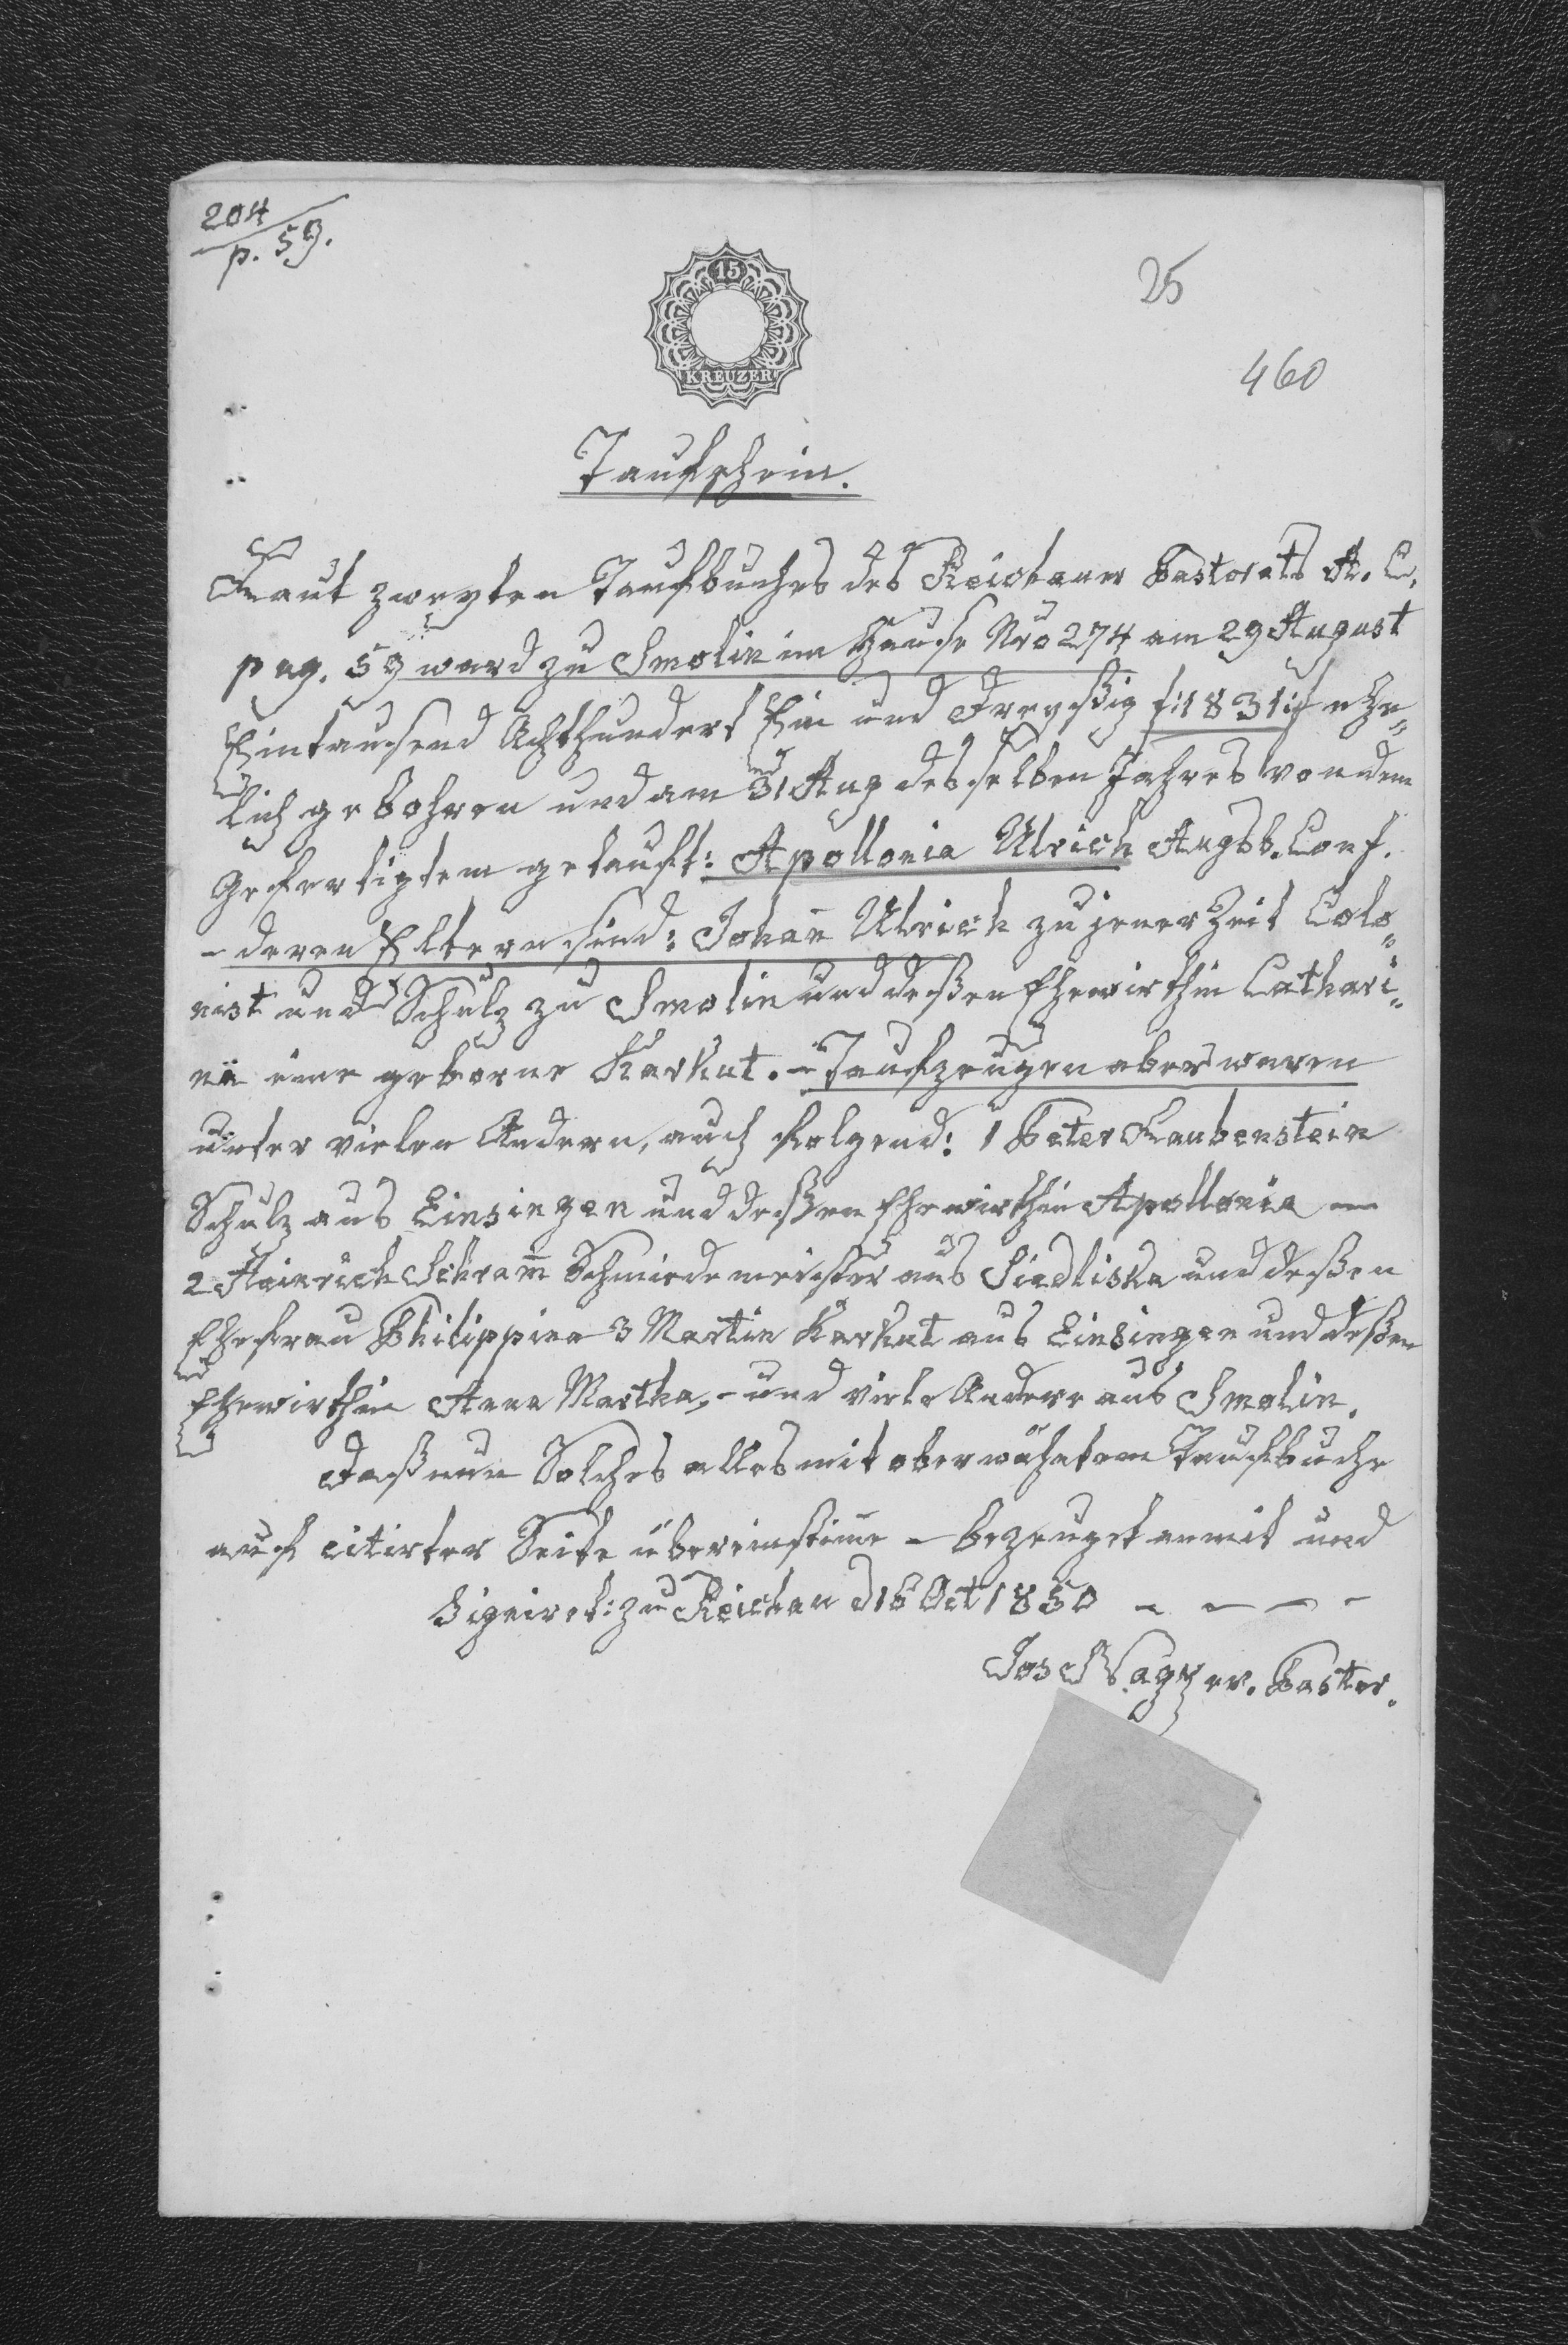 204
p. 59.
15
KREUZER
25
460
Taufschein.
Laut zweyten Taufbuches des Reichauer Pastorats A. C.
pag. 59 ward zu Smolin im Hause Nro 274 am 29 August
Eintausend Achthundert Ein und Dreyßig /:1831:/ ehe„
lich gebohren und am 31 Aug desselben Jahres von dem
Gefertigtem getauft: Apollonia Ulrich Augsb. Conf.
– deren Eltern sind: Johan̄ Ulrich zu jener Zeit Colo„
nist und Schulz zu Smolin und deßen Ehewirthin Cathari„
na eine geborne Karkut. – Taufzeugen aber waren
unter vielen Andern, auch folgend: 1 Peter Laubenstein
Schulz aus Einsingen und deßen Ehewirthin Apollonia –
2 Heinrich Schram̄ Schmiedemeister aus Siedliska und deßen
Ehefrau Philippina 3 Martin Karkut aus Einsingen und deßen
Ehewirthin Anna Martha, – und viele Andere aus Smolin.
Daß nun Solches alles mit oberwähntem Taufbuche
auf citirter Seite übereinstim̄e – bezeuget anmit und
Signiret: zu Reichau d 16 Oct 1850 – – – –
Jos Nagy ev. Pastor.